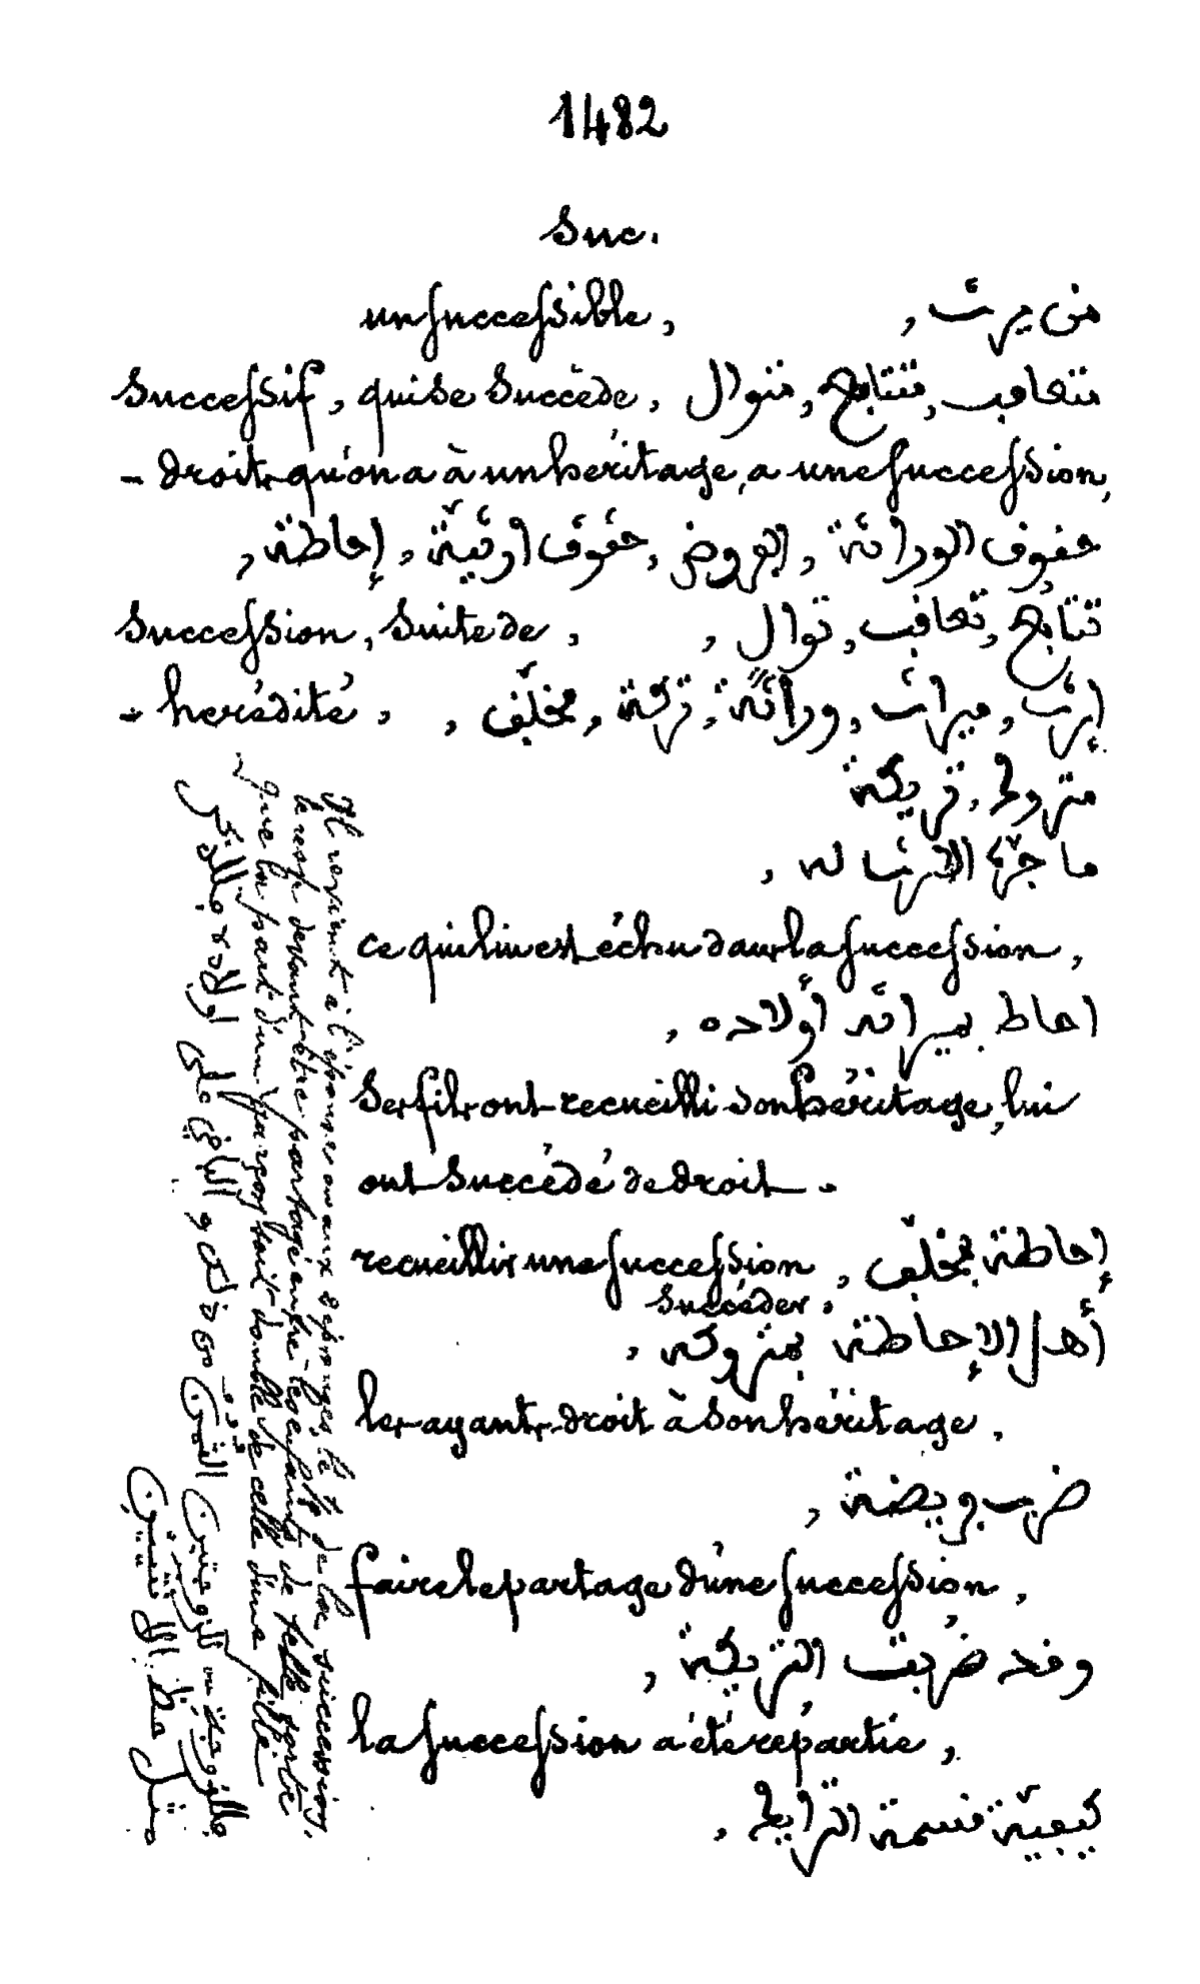 1482
Suc.
un successible, من يرث,
Successif, qui se Succède, متعاقب, متتابع, متوال
- droits qu'on a à un héritage, a une succession,
حقوق الوراثة, الفروض, حقوق ارثيّة, إحاطة,
Succession, Suite de, تتابع, تعاقب, توال,
- herédité, إرث, ميراث, وراثة, تركة, مخلّف,
متروك, تريكة
ما جرّه الارث له,
ce qui lui est échu dans la succession,
احاط بميراثه أولاده,
Ses fils ont recueilli son héritage, lui
ont Succédé de droit.
recueillir une succession, إحاطة بمخلّف,
Succéder,
أهل الإحاطة بمتروكه,
les ayants droit à son héritage,
ضرب فريضة,
faire le partage d'une succession,
وقد ضربت التريكة,
la succession a été répartie,
كيفيّة قسمة الترايك,
Il revient à l'épouse ou aux épouses le 1/8 de la succession,
le reste devant être partagé entre les enfants de telle sorte
que la part d'un garçon soit double de celle d'une fille
فللزوجة للزوجتين الثمن من ذلك و الباقي على اولاده فللذكر
مثل حظ الانثيين